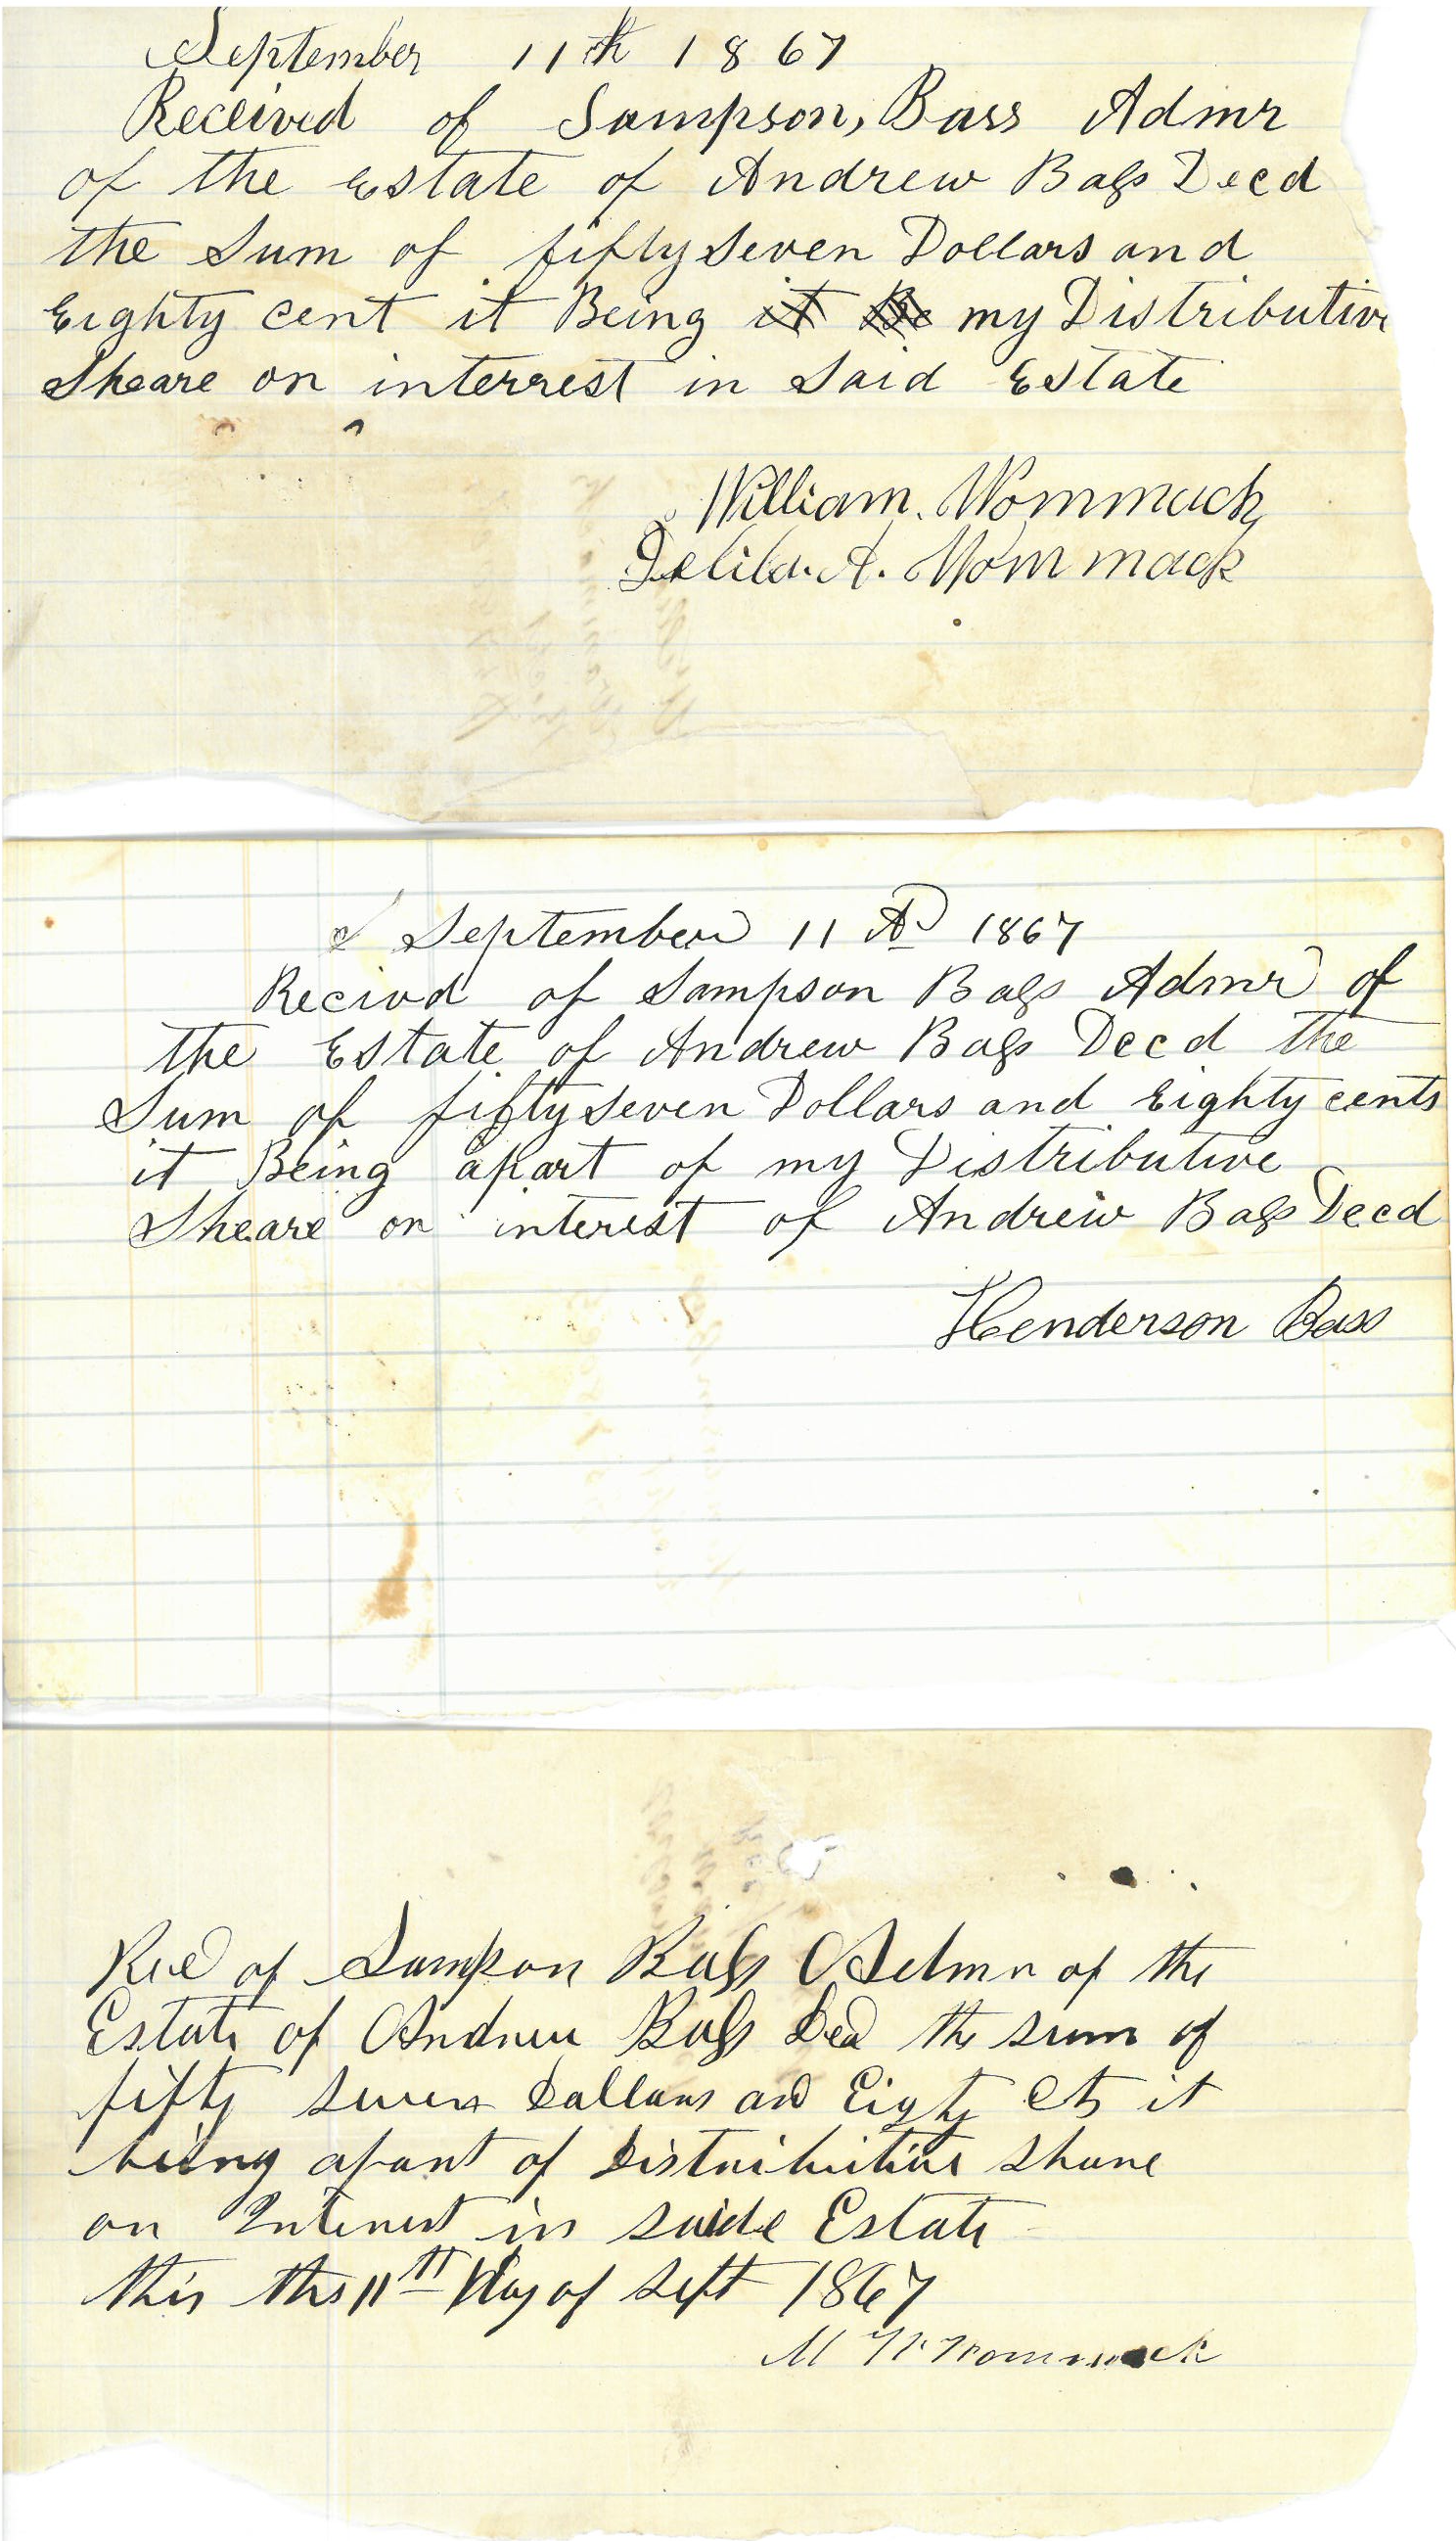 September 11th 1867
Received of Sampson, Bass Admr
of the Estate of Andrew Bass Decd
the Sum of fifty Seven Dollars and
Eighty cent it Being it Be my Distributive
Sheare on interrest in Said Estate
William. Wommack
Delila. A. Wommack
September 11 AD 1867
Recivd of Sampson Bass Admr of
the Estate of Andrew Bass Decd the
Sum of fifty Seven Dollars and Eighty cents
it Being apart of my Distributive
Sheare on interest of Andrew Bass Decd
Henderson Bass
Recd of Sampson Bass Admr of the
Estate of Andrew Bass Decd the sum of
fifty seven Dollars and Eigty Cts it
being apart of Distributive Share
on Interest in saide Estate
this the 11th Day of Sept 1867
M W Wommack